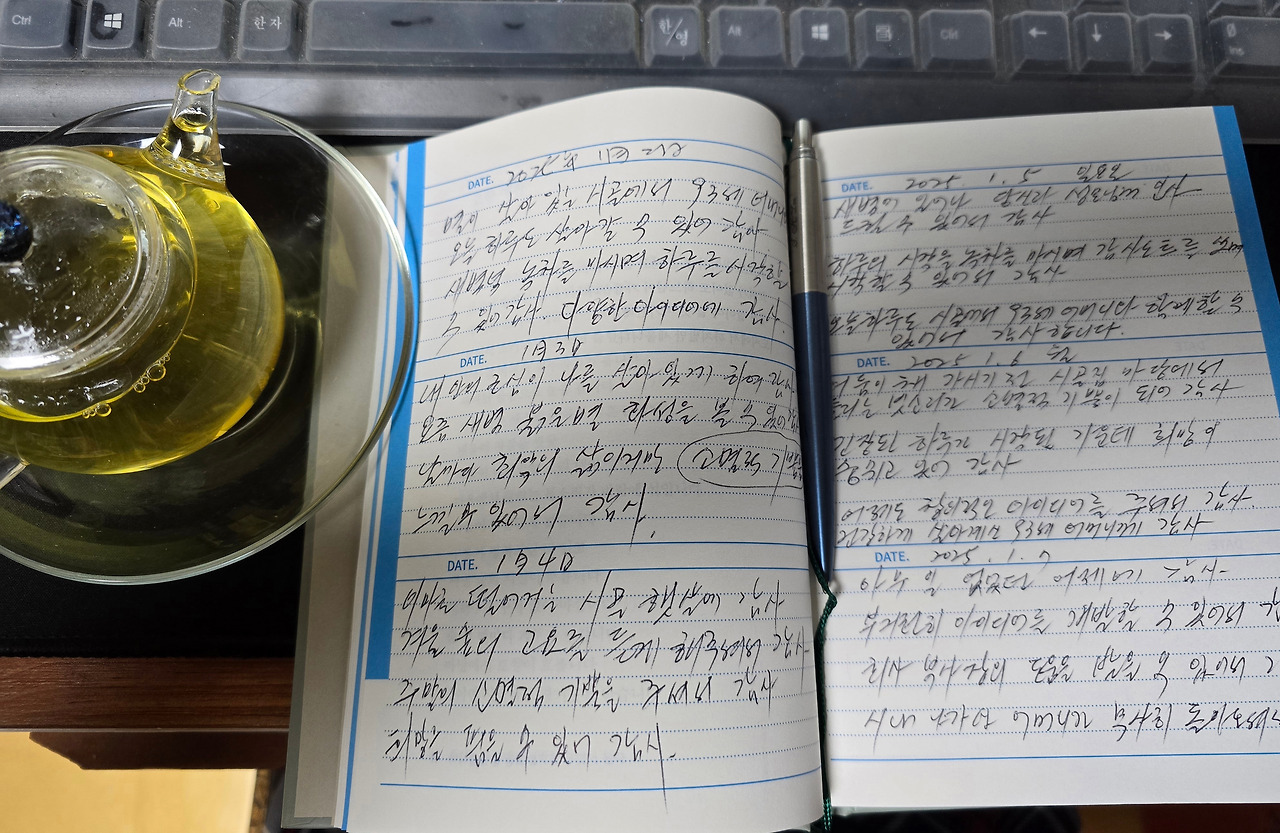 Ctrl
Alt
한자
한/영
Alt
Ctrl
←
↓
→
0
Ins
DATE. 1月 2日
별이 살아 있는 시골에서 93세 어머니
오늘 하루도 살아갈 수 있어 감사
새벽녘 녹차를 마시며 하루를 시작할
수 있어 감사 다양한 아이디어에 감사
DATE. 1月 3日
내 안의 로심이 나를 살아 있게 하여 감사
요즘 새벽 붉은별 화성을 볼 수 있어
날마다 희망의 삶이지만 소멸적 기쁨을
느낄 수 있어서 감사.
DATE. 1月 4日
이마로 떨어지는 시골 햇살에 감사
겨울 숲의 고요를 듣게 해주셔서 감사
주말의 소멸적 기쁨을 주셔서 감사
희망을 품을 수 있어 감사.
DATE. 2025. 1. 5 일요일
새벽에 일어나 성모님께 인사
드릴 수 있어서 감사
하루의 시작을 녹차를 마시며 감사도트로
시작할 수 있어서 감사
오늘 하루도 시골에서 93세 어머니와 함께할 수
있어서 감사합니다.
DATE. 2025. 1. 6 월
어둠이 채 가시기 전 시골집 마당에서
들리는 소리가 소멸적 기쁨이 되어 감사
긴장된 하루가 시작된 가운데 희망이
있어 감사
어제도 창의적인 아이디어를 주셔서 감사.
건강하게 살아계신 93세 어머니께 감사
DATE. 2025. 1. 7
아무 일 없었던 어제에 감사
부지런히 아이디어를 개발할 수 있어서
회사 부사장의 도움을 받을 수 있어서
시내 나가신 어머니가 무사히 돌아오셔서